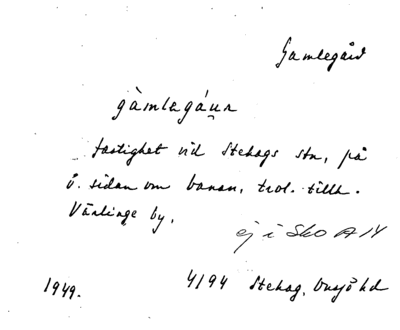 Gamlegård
gàmlegáɹn
fastighet vid Stehags stn, på
ö. sidan om banan, trol. tillh.
Vänlinge by.
ej i SkO A 14
1949. 4194 Stehag, Onsjö hd